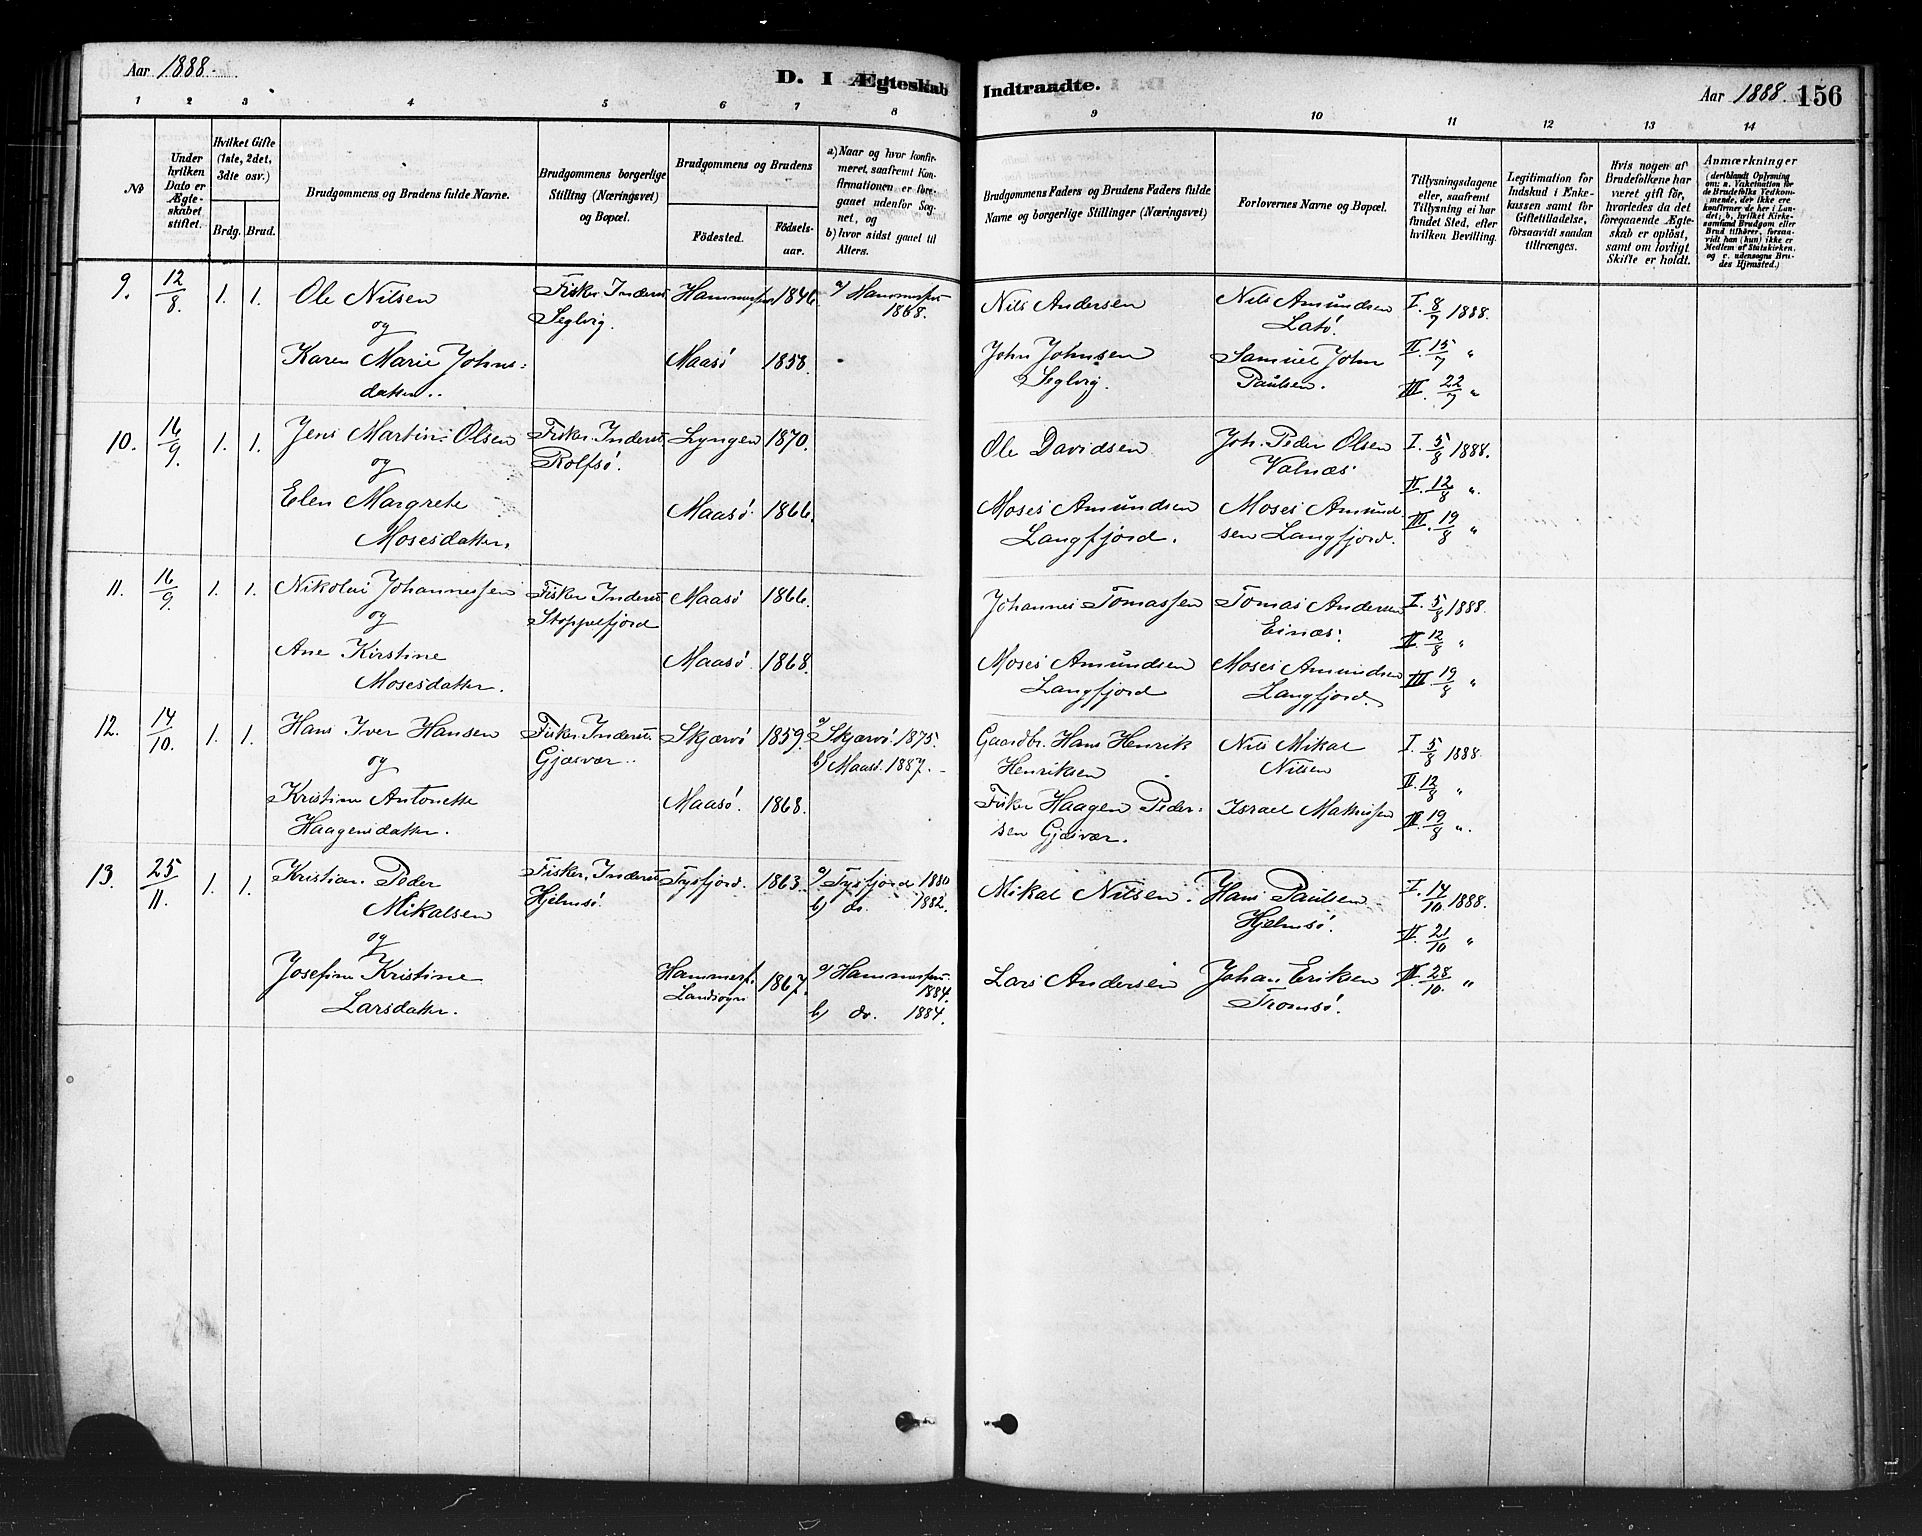 Aar 1888.
D. I Ægteskab Indtraadte.
Aar 1888. 156
1 2 3 4 5 6 7 8 9 10 11 12 13 14
No
Under hvilken Dato er Ægteskabet stiftet.
Hvilket Gifte (1ste, 2det, 3dte osv.)
Brdg. Brud.
Brudgommens og Brudens fulde Navne.
Brudgommens borgerlige Stilling (Næringsvei) og Bopæl.
Brudgommens og Brudens
Födested. Födselsaar.
a) Naar og hvor konfirmeret, saafremt Konfirmationen er foregaaet udenfor Sognet, og
b) hvor sidst gaaet til Alters.
Brudgommens Faders og Brudens Faders fulde Navne og borgerlige Stillinger (Næringsvei)
Forlovernes Navne og Bopæl.
Tillysningsdagene eller, saafremt Tillysning ei har fundet Sted, efter hvilken Bevilling.
Legitimation for Indskud i Enkekassen samt for Giftetilladelse, forsaavidt saadan tiltrænges.
Hvis nogen af Brudefolkene har været gift för, hvorledes da det foregaaende Ægteskab er oplöst, samt om lovligt Skifte er holdt.
Anmærkninger (deriblandt Oplysning om: a. Vakcination for de Brudefolks Vedkommende, der ikke ere konfirmerede her i Landet; b, hvilket Kirkesamfund Brudgom eller Brud tilhörer, forsaavidt han (hun) ikke er Medlem af Statskirken, og c. udensogns Brudes Hjemsted.)
9. 12/8. 1. 1. Ole Nilsen Fisker Inderst Hammerfest 1846. a) Hammerfest Nils Andersen Nils Amundsen I. 8/7 1888.
og Seglvig. 1868. Latö.
Karen Marie Johns= Maasö 1858. John Johnsen Samuel John II. 15/7 "
datter. Seglvig. Paulsen. III. 22/7 "
10. 16/9. 1. 1. Jens Martin Olsen Fisker Inderst Lyngen 1870. Ole Davidsen Joh. Peder Olsen I. 5/8 1888.
og Rolfsö. Valnæs. II. 12/8 "
Elen Margrete Maasö. 1866. Moses Amundsen Moses Amund- III. 19/8 "
Mosesdatter. Langfjord. sen Langfjord.
11. 16/9. 1. 1. Nikolai Johannessen Fisker Inderst Maasö 1866. Johannes Tomassen Tomas Andersen I. 5/8 1888.
og Stoppelfjord Einæs. II. 12/8 "
Ane Kirstine Maasö. 1868. Moses Amundsen Moses Amundsen III 19/8 "
Mosesdatter. Langfjord Langfjord.
12. 14/10. 1. 1. Hans Iver Hansen Fisker Inderst. Skjærvö 1859. a) Skjærvö. 1875. Gaardbr. Hans Henrik Nils Mikal I. 5/8 1888.
og Gjæsvær. b) Maasö. 1887. Henriksen Nilsen II. 12/8 "
Kristine Antonette Maasö. 1868. Fisker Haagen Peder- Israel Mathissen III. 19/8 "
Haagensdatter. sen Gjæsvær.
13. 25/11. 1. 1. Kristian Peder Fisker, Inderst Tysfjord. 1863. a) Tysfjord 1880 Mikal Nilsen. Hans Paulsen I. 14/10 1888.
Mikalsen Hjelmsö. b) do. 1882. Hjelmsö. II. 21/10 "
og
Josefine Kristine Hammerf. 1867. a) Hammerfest Lars Andersen Johan Eriksen III. 28/10. "
Larsdatter. Landsogn 1884. Tromsö.
b) do. 1884.